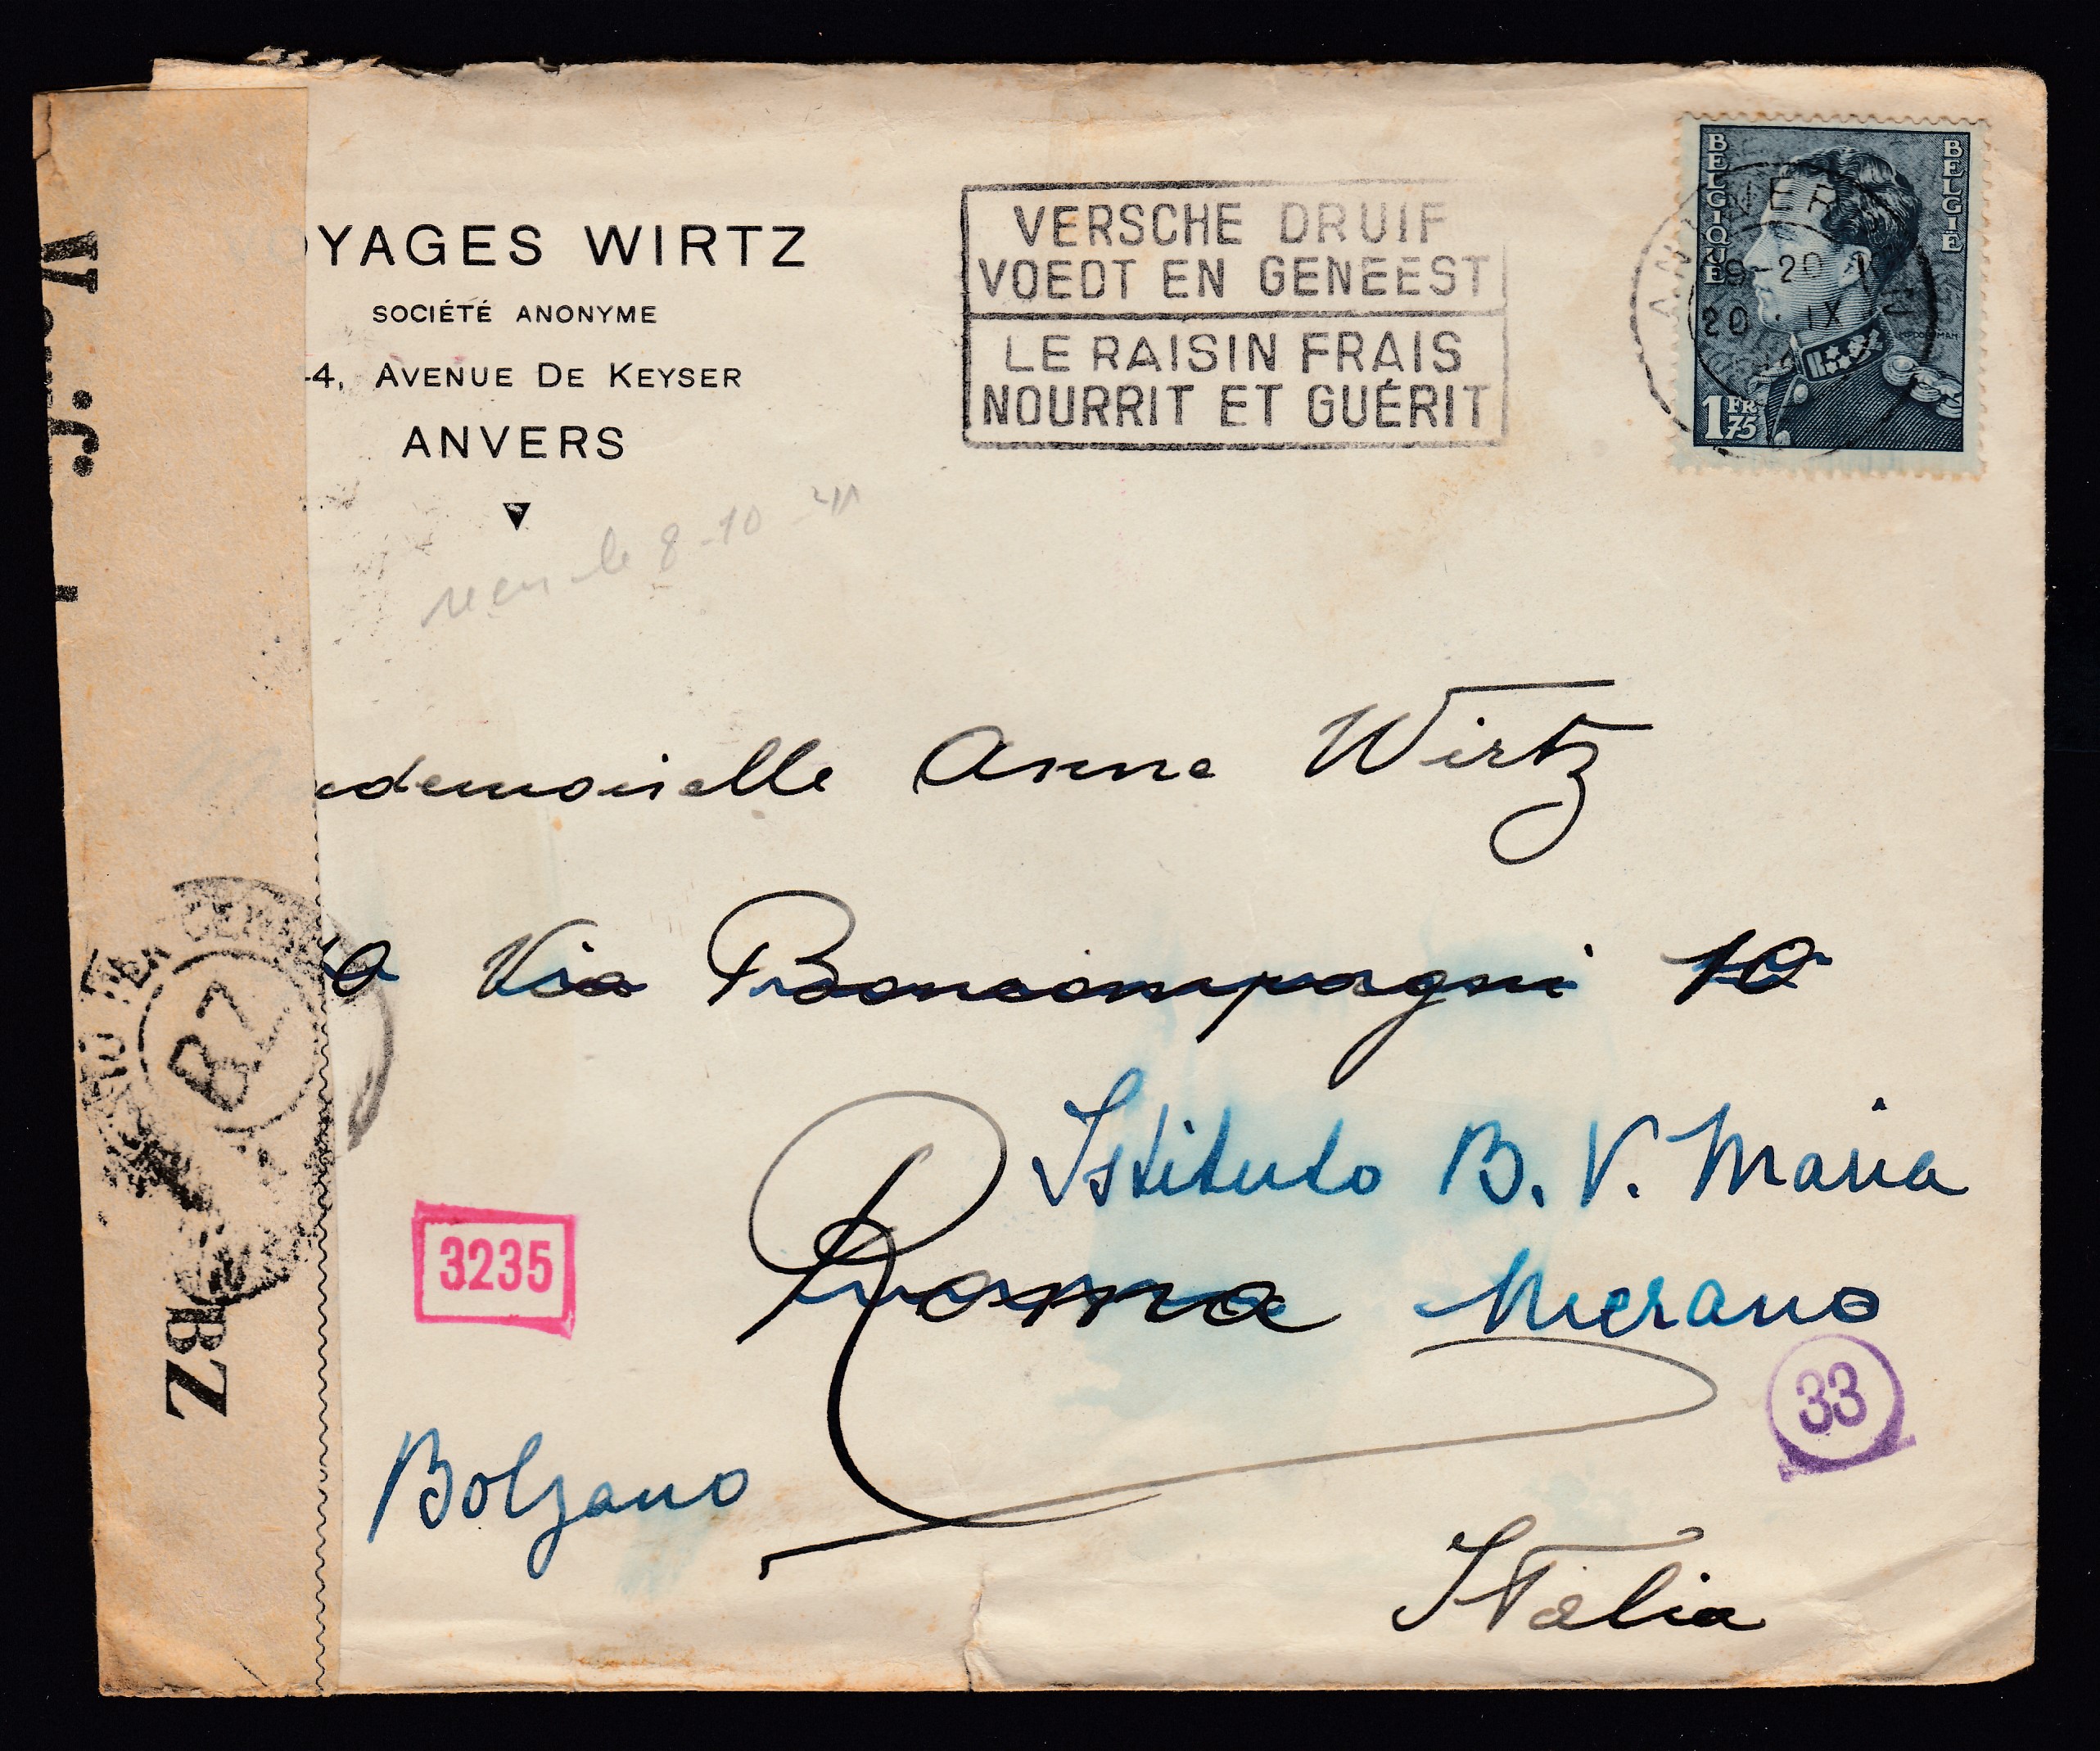 OYAGES WIRTZ
SOCIÉTÉ ANONYME
-4, AVENUE DE KEYSER
ANVERS
VERSCHE DRUIF
VOEDT EN GENEEST
LE RAISIN FRAIS
NOURRIT ET GUÉRIT
BELGIQUE
BELGIË
1 FR 75
20 IX
8-10-41
ademoiselle Anne Wirtz
Via Boncompagni 10
Istituto B. V. Maria
Roma Merano
3235
33
Bolzano
Italia
BZ
BZ